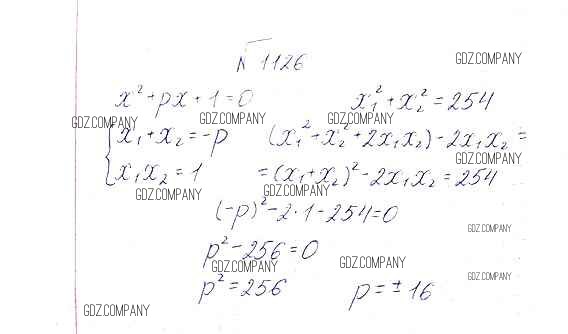 № 1126
GDZ.COMPANY
x² + px + 1 = 0
x₁² + x₂² = 254
GDZ.COMPANY GDZ.COMPANY GDZ.COMPANY
{ x₁ + x₂ = -p
(x₁² + x₂² + 2x₁x₂) - 2x₁x₂ =
GDZ.COMPANY
x₁x₂ = 1
= (x₁ + x₂)² - 2x₁x₂ = 254
GDZ.COMPANY GDZ.COMPANY
(-p)² - 2·1 - 254 = 0
GDZ.COMPANY
p² - 256 = 0
GDZ.COMPANY GDZ.COMPANY
GDZ.COMPANY
p² = 256
p = ± 16
GDZ.COMPANY